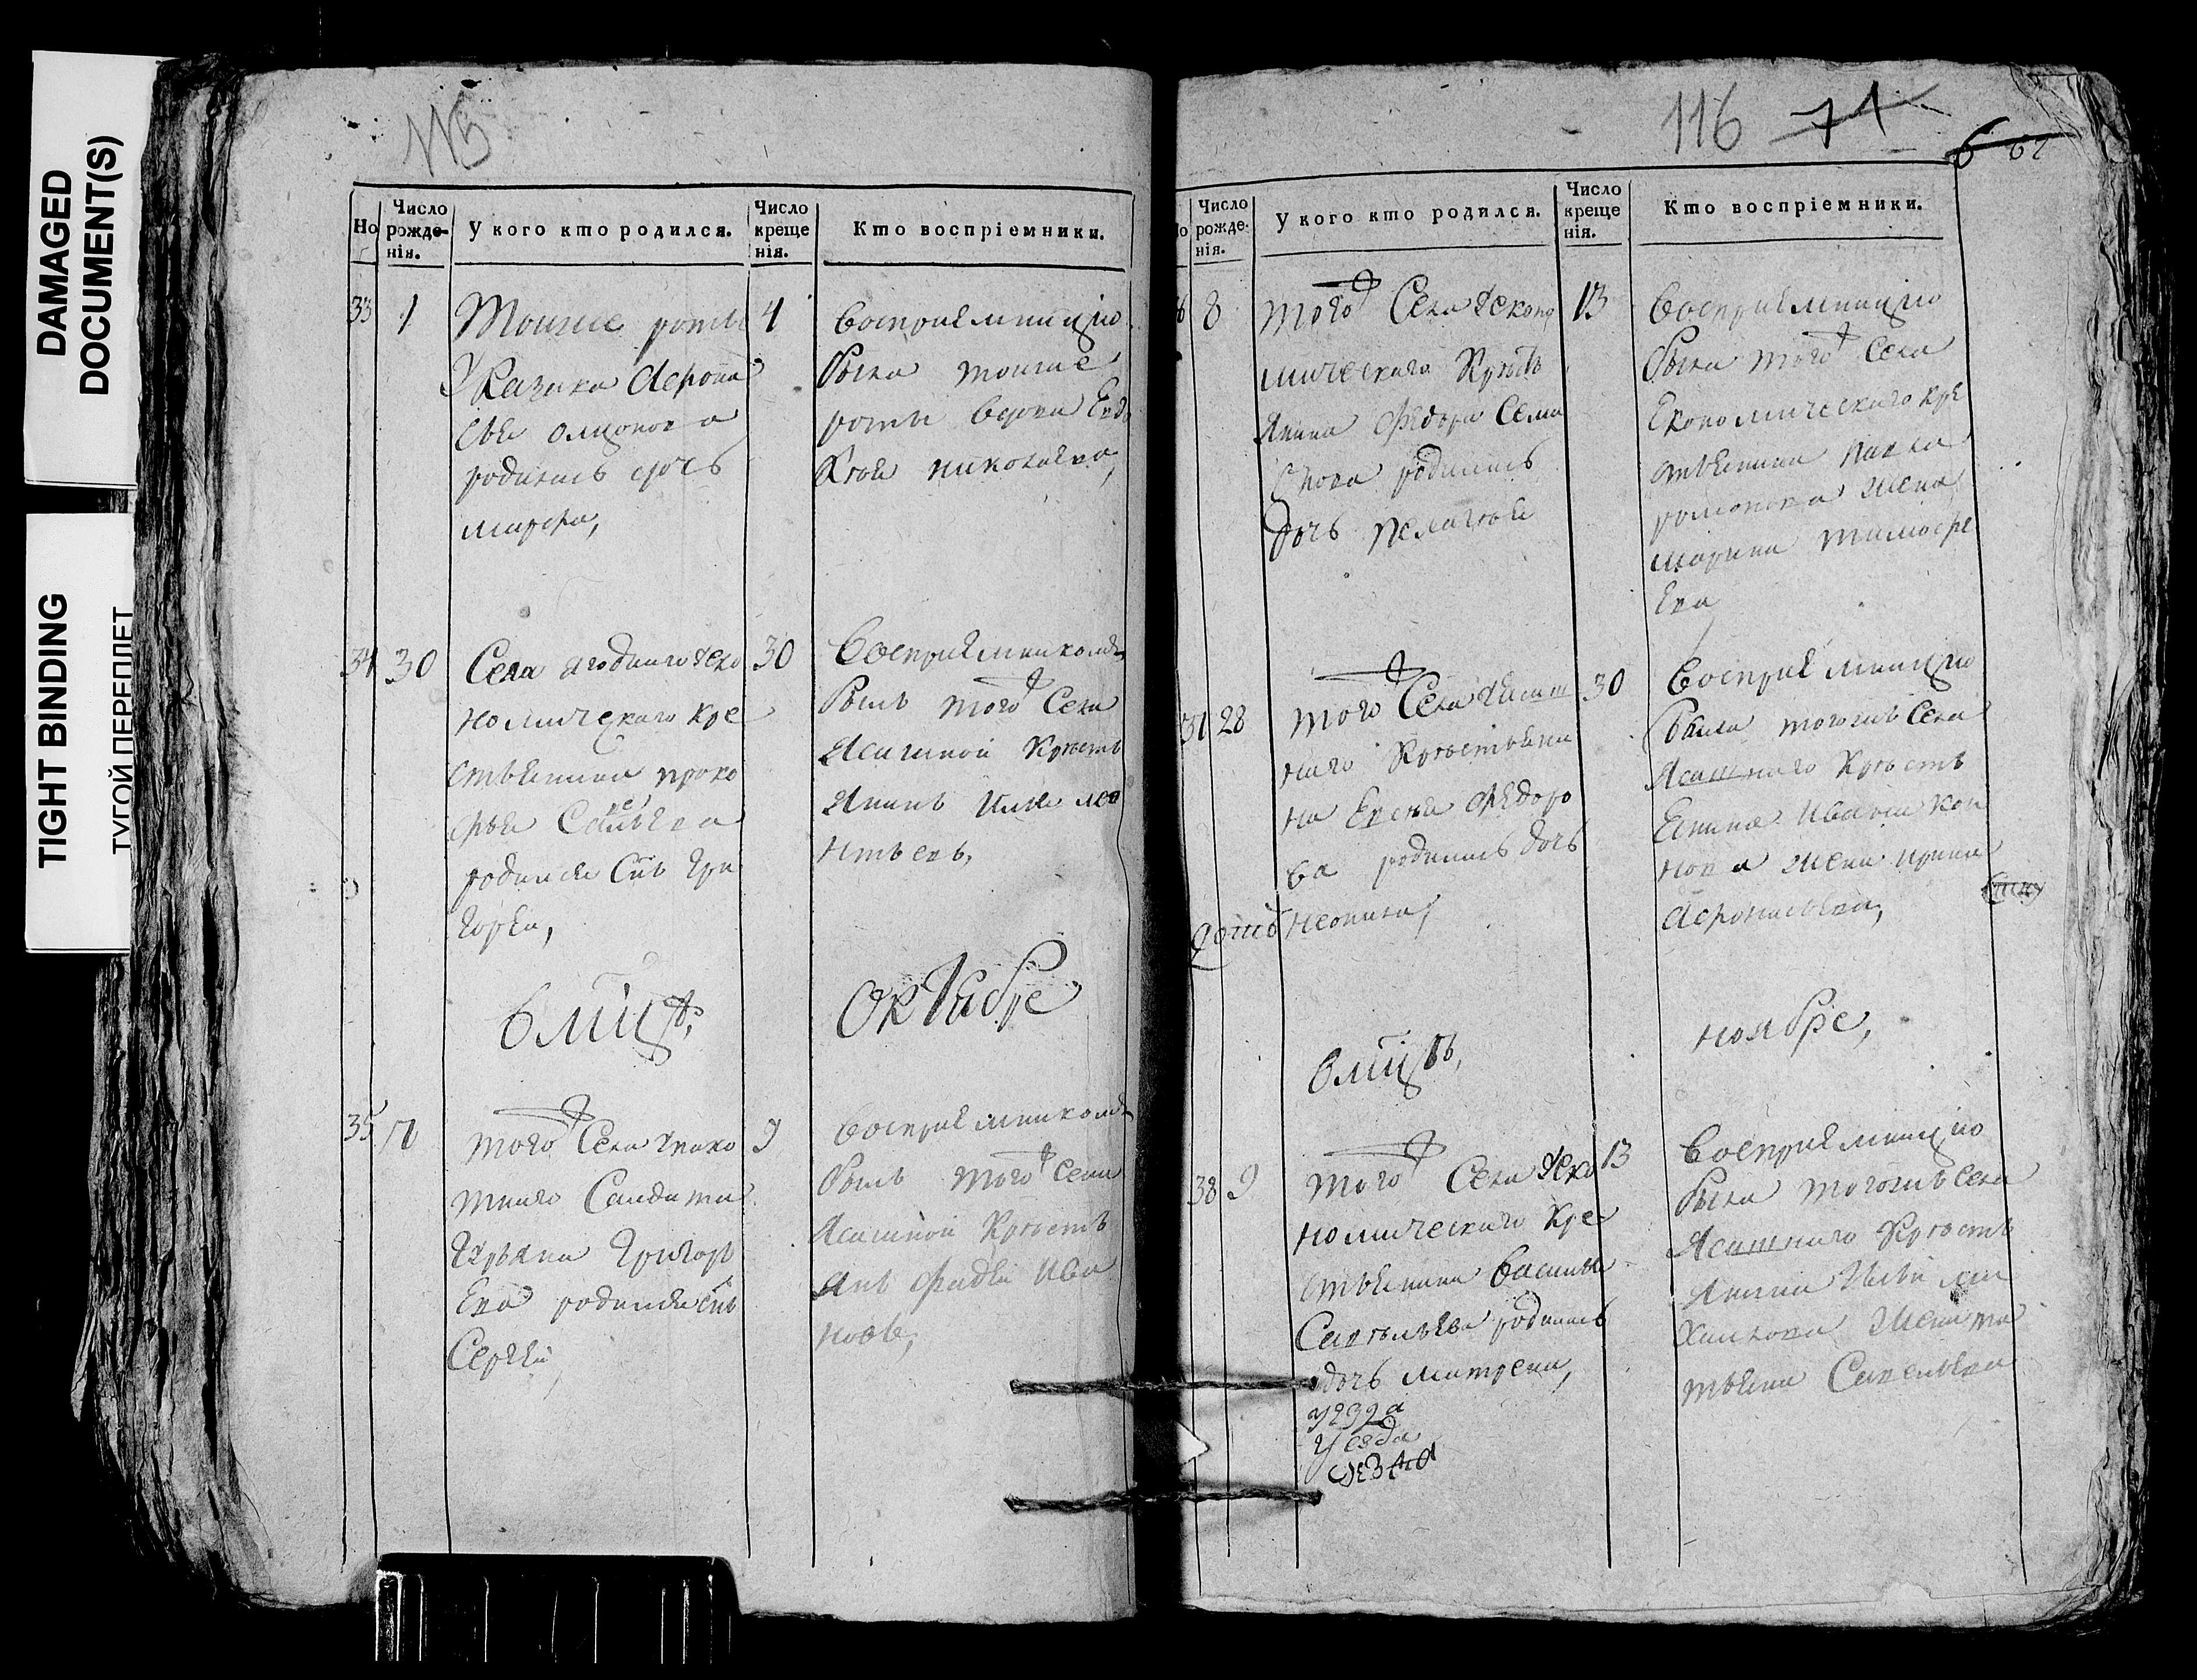 DAMAGED
DOCUMENT(S)
TIGHT BINDING
ТУГОЙ ПЕРЕПЛЕТ
115
Но
Число рожде-нія.
У кого кто родился.
Число креще нія.
Кто воспріемники.
33
1
4
роты
Казака Афона
сья
родилась дочь
марфа,
восприемницею
была тоиже
роты вдова Евдо
кея николаева,
34
30
30
Села ягоднаго Еко
номическаго кре
стьянина проко
фья Савельева
родился Снъ Гри
гореи,
Восприемником
былъ того ж Села
Ясашной крестъ
янинъ Илья лео
нтьевъ,
в мцѣ,
октябре
35
7
9
того ж Села
Салдата
Григорь
ева родился снъ
Сергеи,
восприемником
былъ того ж села
Ясашной крестъ
янъ фадеи ива
новъ,
116 71
6 62
Число рожде-нія.
У кого кто родился.
Число креще нія.
Кто воспріемники.
6
8
13
того ж Села Еконо
мическаго крестъ
янина Федора Семи
онова родилась
дочь пелагея
Восприемницею
была того ж Села
Економическаго кре
стьянина павла
романова жена
марина тимофе
ева
31
28
30
того ж Села Ясаш
наго крестьяни
на Евсея Федоро
ва родилась дочь
неонила,
Восприемницею
была тогожъ Села
Ясашнаго крестъ
енина ивана кон
нова жена ирина
Афонасьева,
в мцѣ,
ноябре,
38
9
13
того ж Села Еко
номическаго кре
стьянина василья
Савельева родилась
дочь матрена,
уезда
уезда
уезда
Восприемницею
была тогожъ села
Ясашнаго крестъ
янина Ильи ми
хаилова жена та
тьяна Савельева